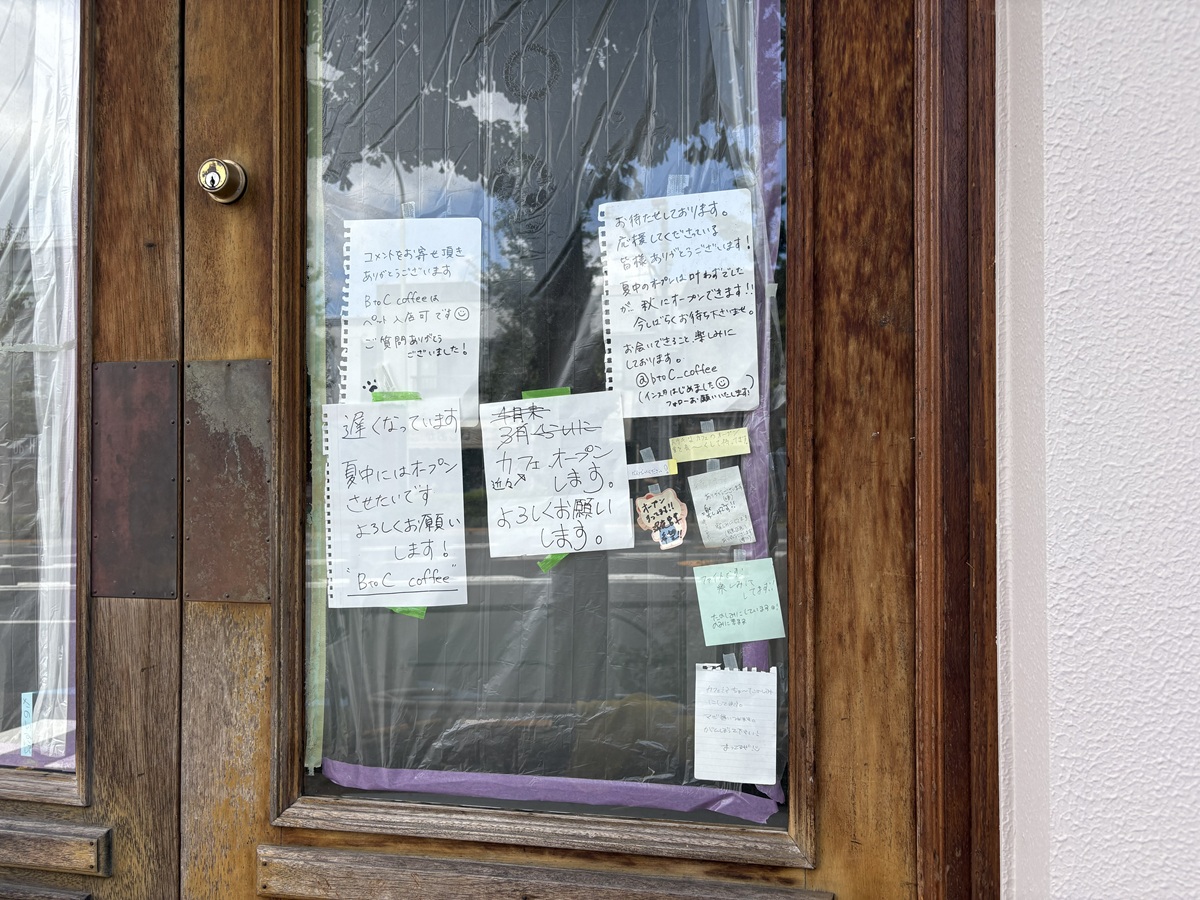 コメントをお寄せ頂き
ありがとうございます
BtoC coffeeは
ペット入店可です
ご質問ありがとう
ございました!
お待たせしております。
応援してくださっている
皆様ありがとうございます!
夏中のオープンは叶わずでした
が 秋にオープンできます!!
今しばらくお待ち下さいませ。
お会いできること楽しみに
しております。
@btoC_coffee
(インスタはじめました
フォローお願いいたします!)
遅くなっています
夏中にはオープン
させたいです
よろしくお願い
します!
"BtoC coffee"
3月くらいに
カフェオープン
近々 します。
よろしくお願い
します。
オープン
まってます!!
楽しみに
してます!!
たのしみにしています!